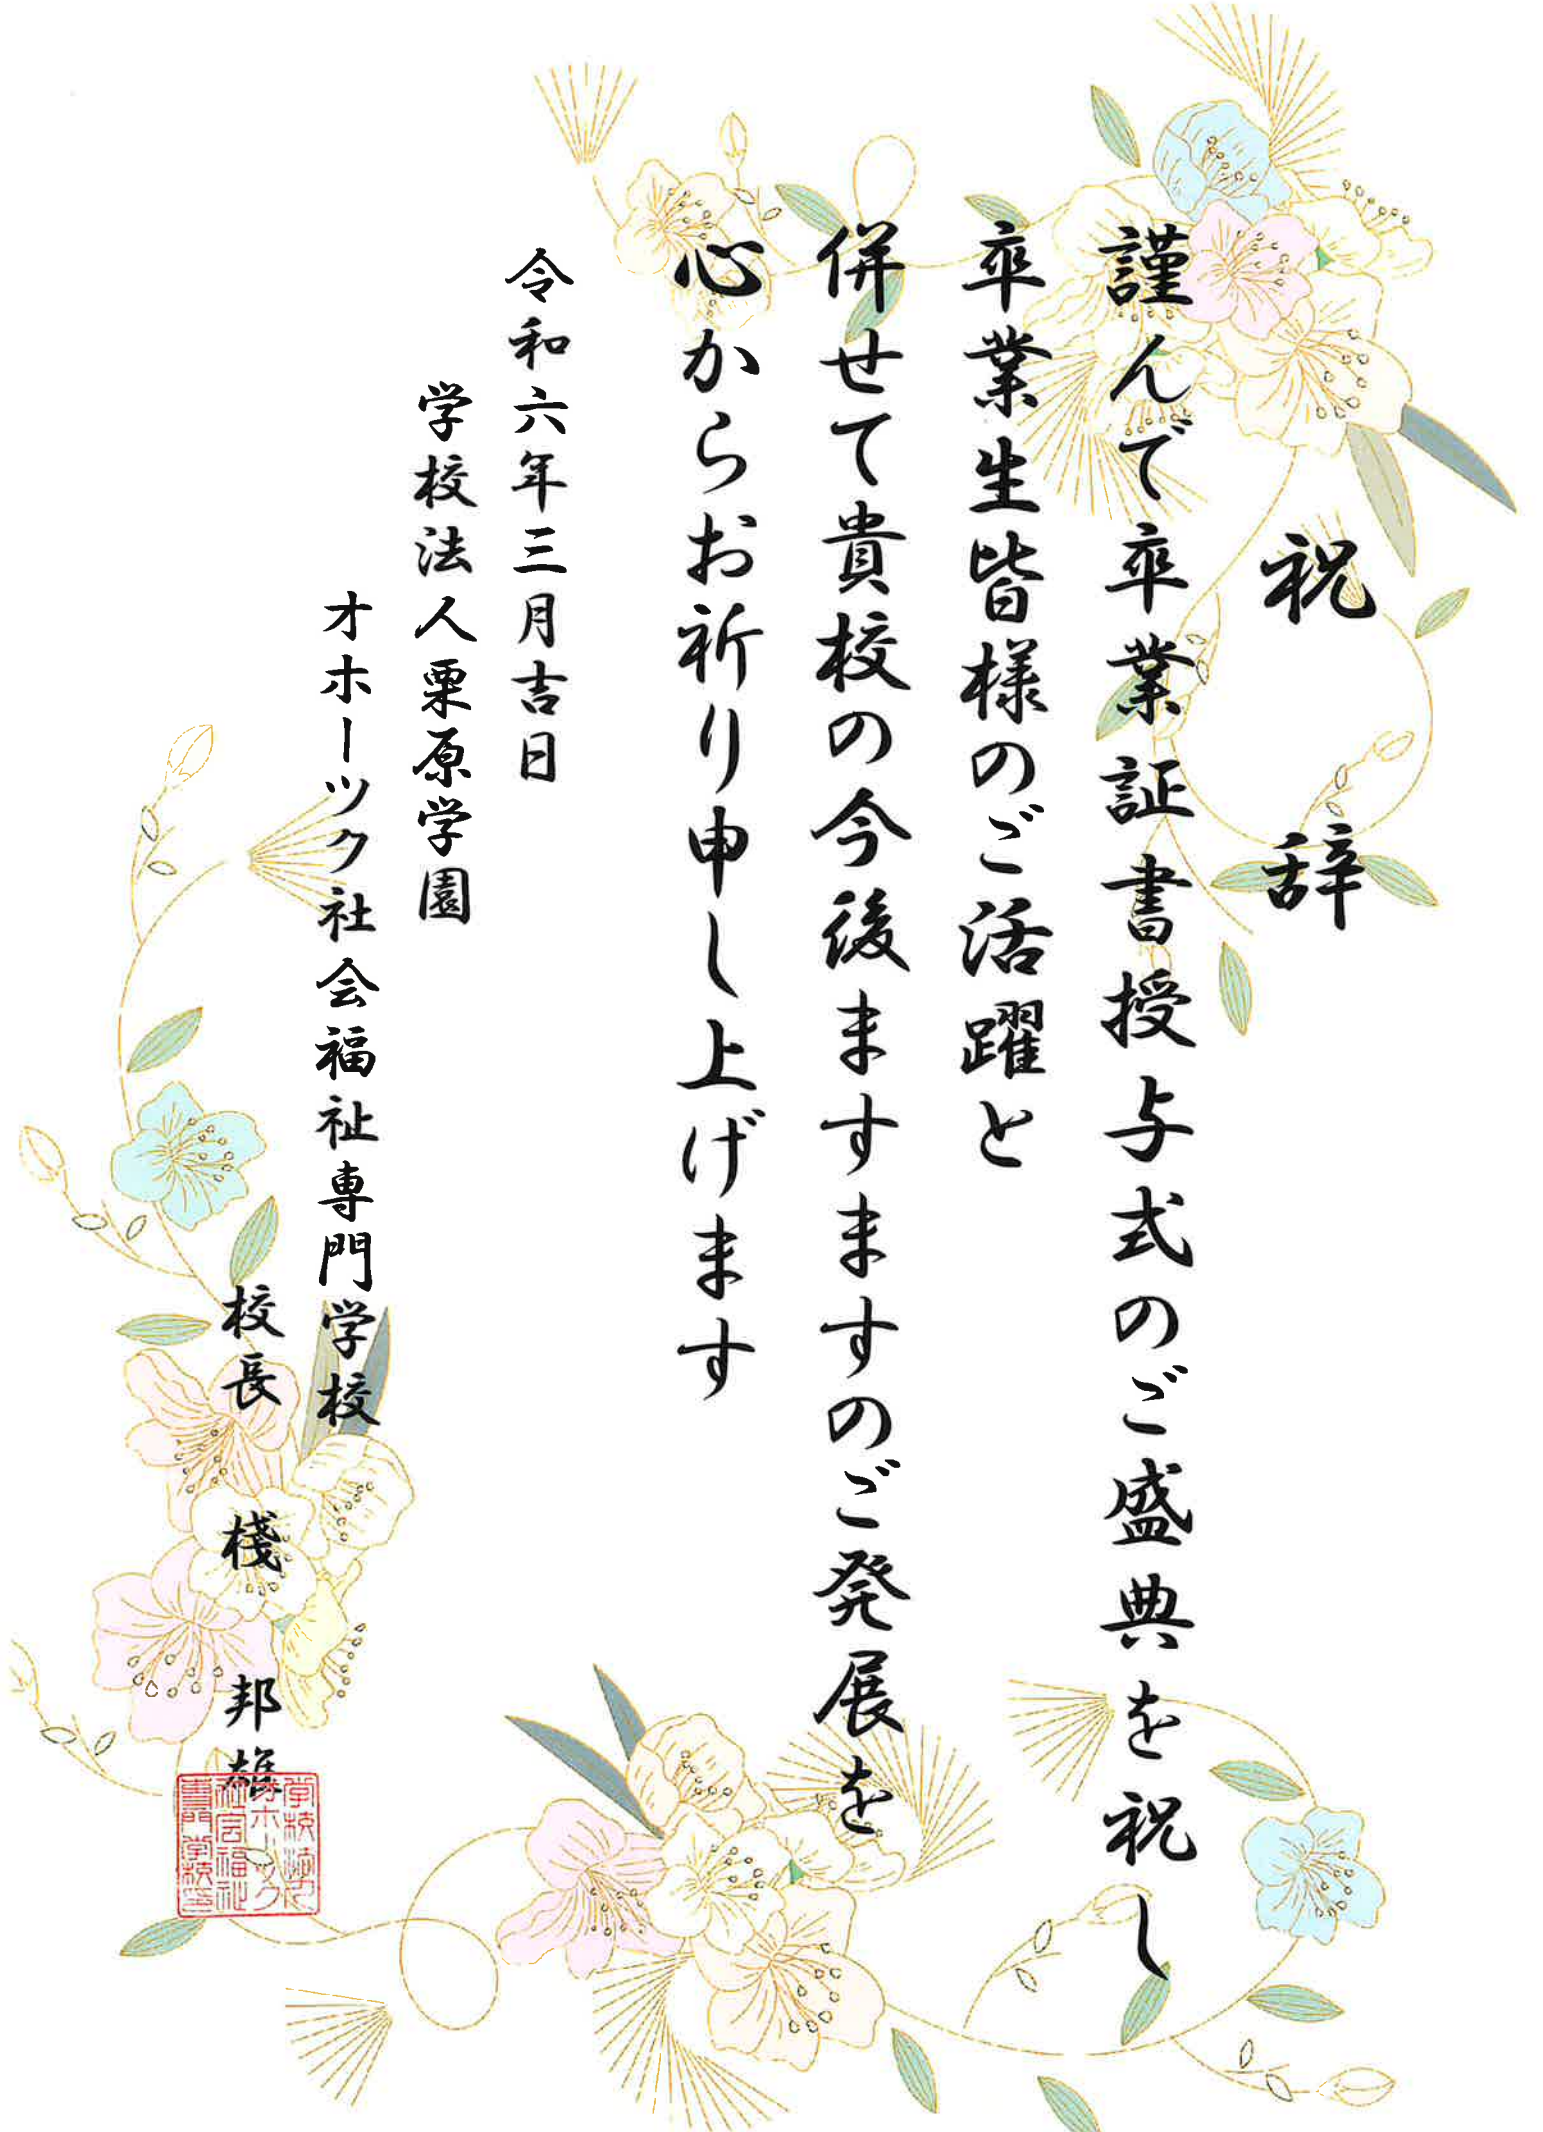 祝辞
謹んで卒業証書授与式のご盛典を祝し
卒業生皆様のご活躍と
併せて貴校の今後ますますのご発展を
心からお祈り申し上げます
令和六年三月吉日
学校法人栗原学園
オホーツク社会福祉専門学校
校長 棧 邦雄
学校法人
オホーツク
社会福祉
専門学校印